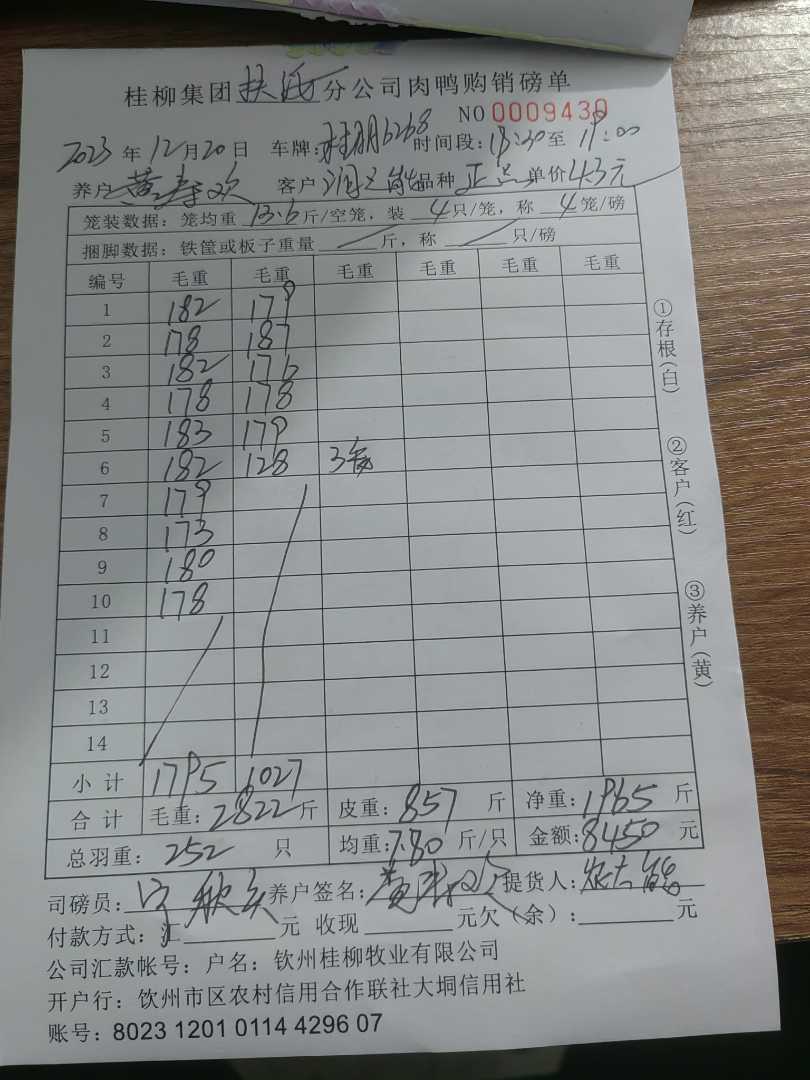 桂柳集团 扶 分公司肉鸭购销磅单
NO 0009430
2023 年 12 月 20 日 车牌: 桂 6268 时间段: 18:30 至 19:00
养户 黄寿欢 客户 品种 正品 单价 4.3 元
笼装数据: 笼均重 13.6 斤/空笼, 装 4 只/笼, 称 4 笼/磅
捆脚数据: 铁筐或板子重量 / 斤, 称 / 只/磅
编号 毛重 毛重 毛重 毛重 毛重 毛重
1 182 179
2 178 187
3 182 176
4 178 178
5 183 179
6 182 128 3
7 179
8 173
9 180
10 178
11
12
13
14
小计 1795 1027
合计 毛重: 2822 斤 皮重: 857 斤 净重: 1965 斤
总羽重: 252 只 均重: 7.80 斤/只 金额: 8450 元
司磅员: 养户签名: 黄寿欢 提货人:
付款方式: 汇 元 收现 元欠(余): 元
公司汇款帐号: 户名: 钦州桂柳牧业有限公司
开户行: 钦州市区农村信用合作联社大垌信用社
账号: 8023 1201 0114 4296 07
①存根(白)
②客户(红)
③养户(黄)